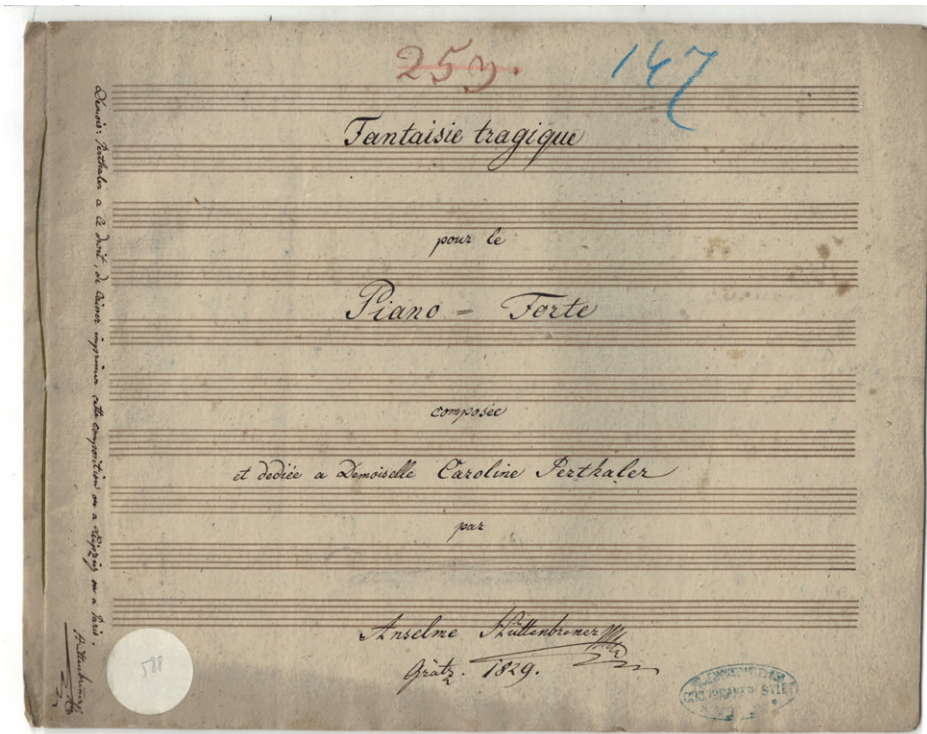 253.
147
Fantaisie tragique
pour le
Piano - Forte
composée
et dediée a Demoiselle Caroline Perthaler
par
Anselme Hüttenbrenner
Grätz. 1829.
Demois: Perthaler a le droit, de laisser imprimer cette composition ou a Leipzig ou a Paris.
Hüttenbrenner
588